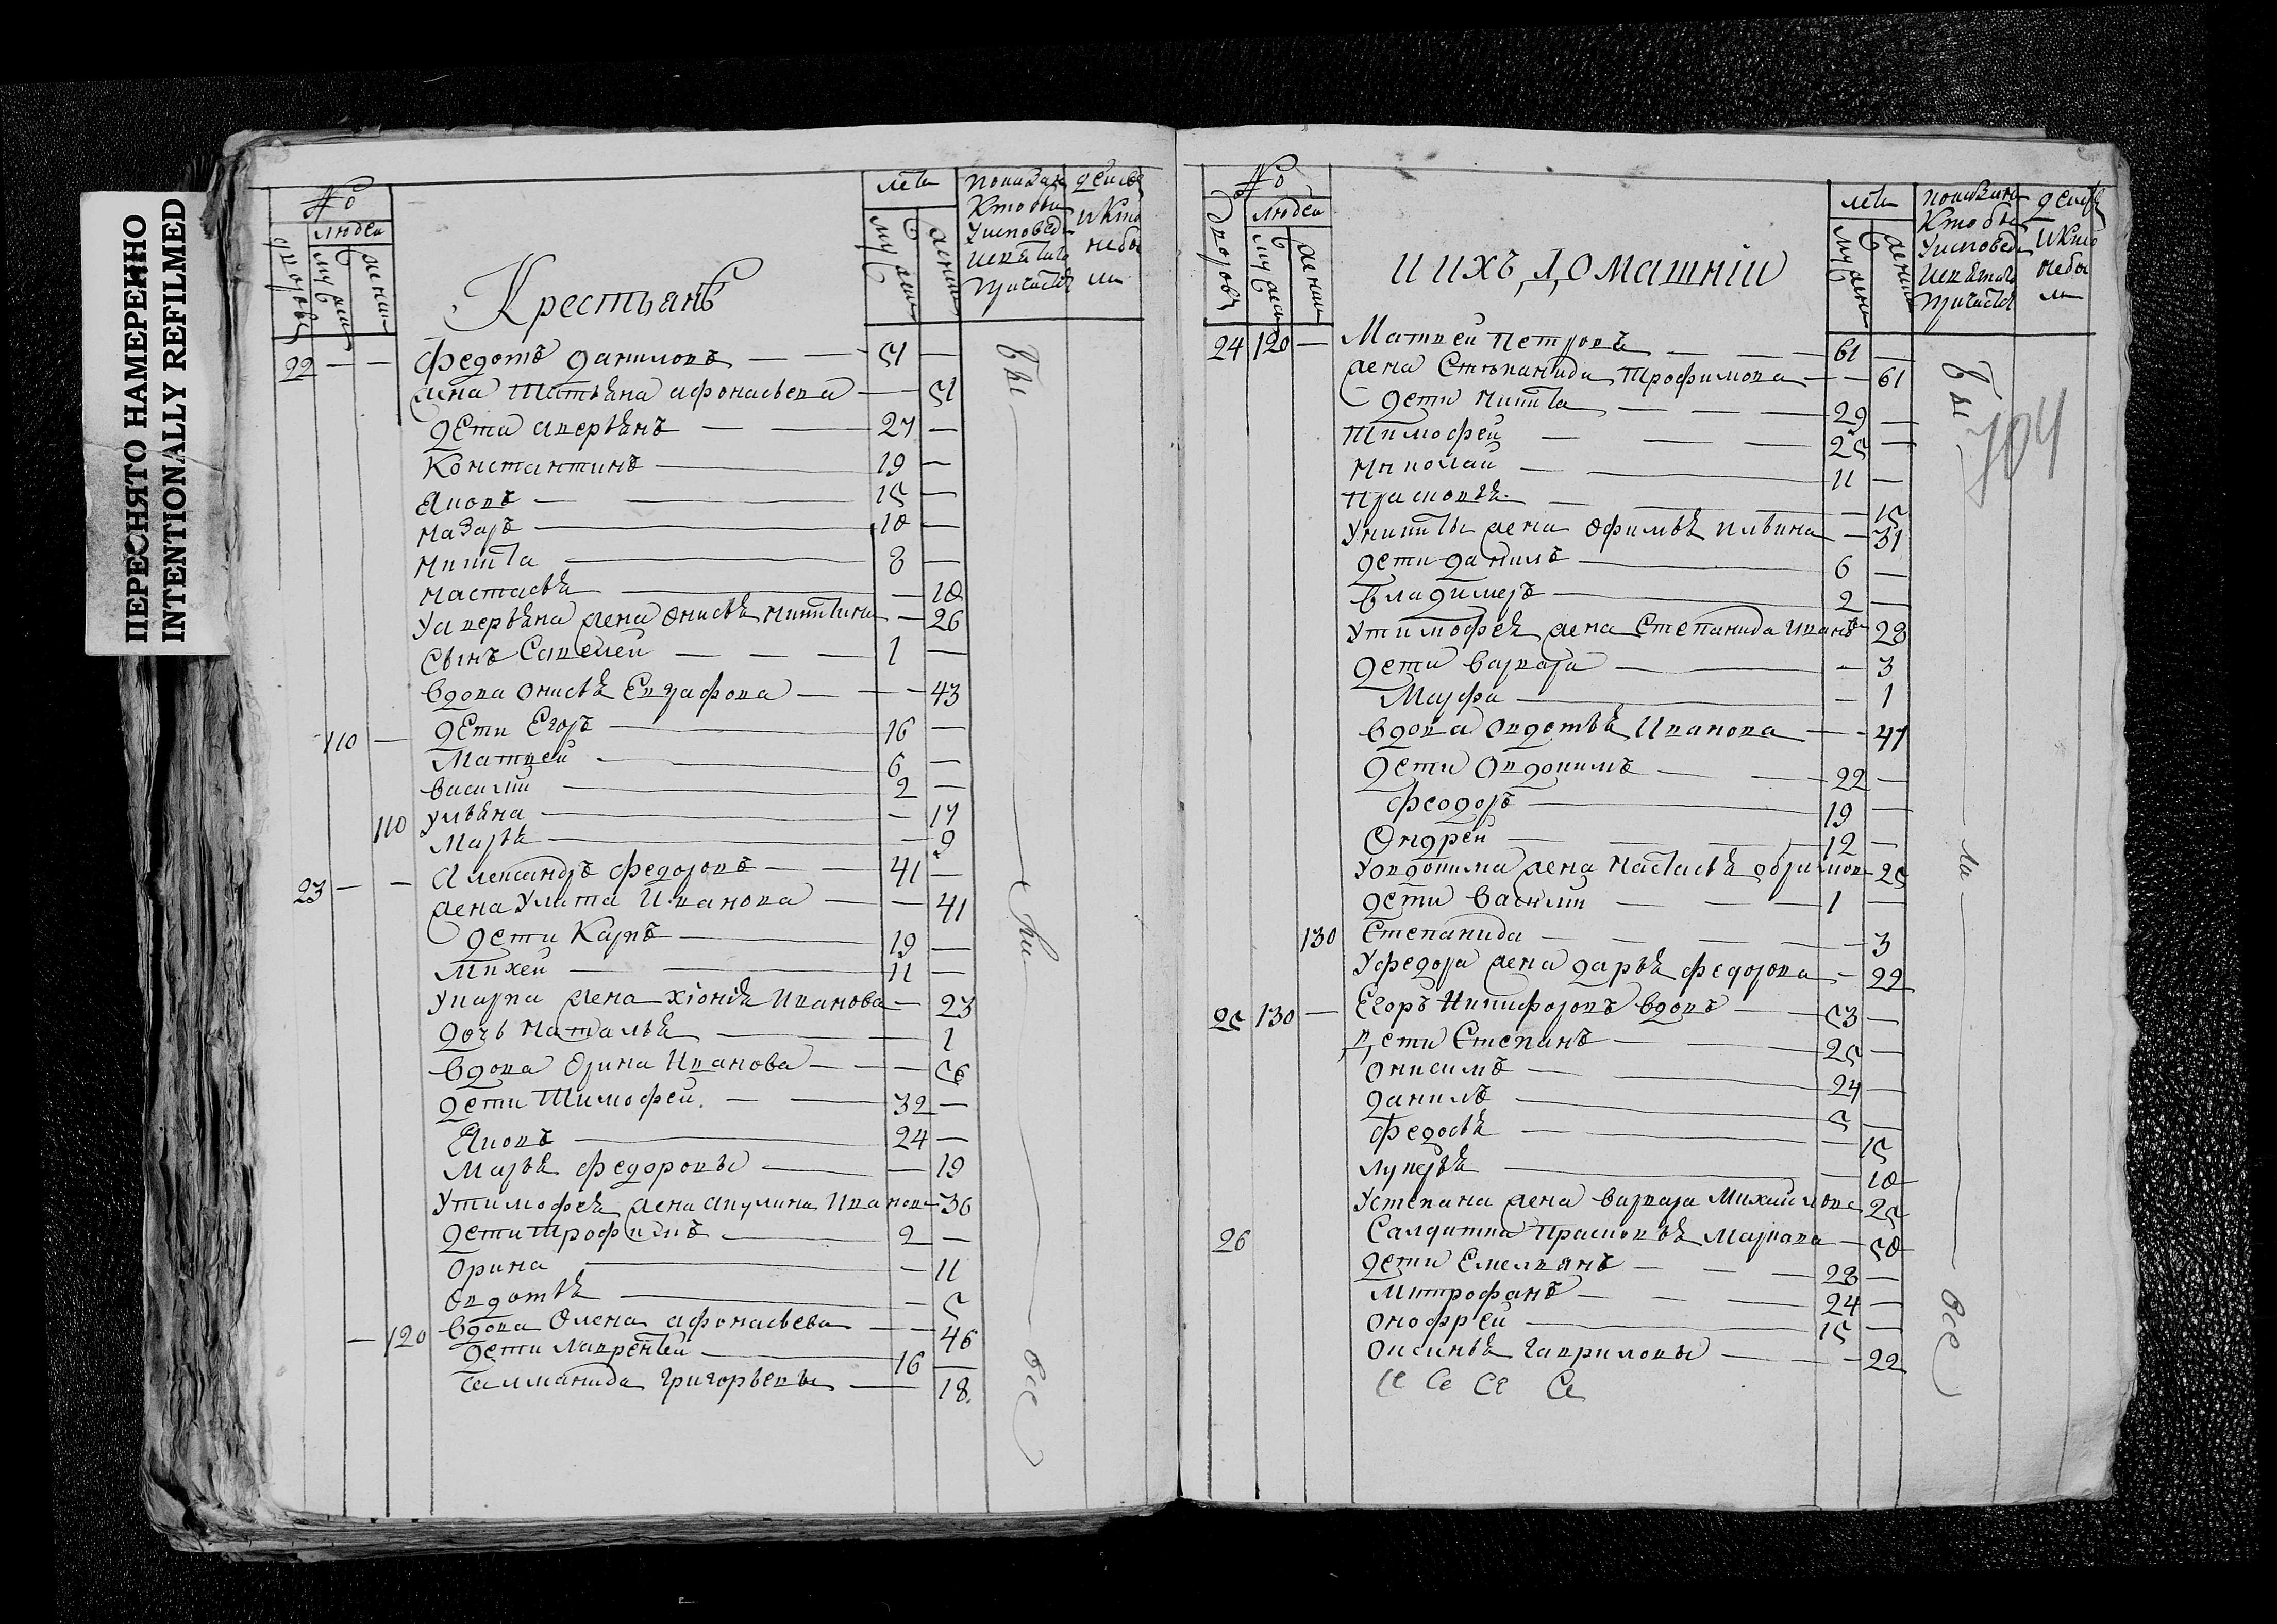 ПЕРЕСНЯТО НАМЕРЕННО
INTENTIONALLY REFILMED
№
людей
дворовъ
мужеск
женск
Крестьянъ
лета
мужеск
женск
показание действа
Кто был
и кто
У исповеди
не бы
и св. Таин
ли
причастия
22 — — Федотъ Даниловъ — — 51 —
жена Татьяна Афонасьева — 51
Дети Аверьянъ — — 27 —
Константинъ — 19 —
Яковъ — — 15 —
Назаръ — 10 —
Никита — 8 —
Настасья — — 10
У Аверьяна жена Онисья Никитина — 26
Сынъ Савелей — — — 1 —
Вдова Онисья Евграфова — — 43
Дети Егоръ — 16 —
110 — Матвей — 6 —
Василий — 2 —
110 Ульяна — — 17
Марья — — 9
23 — — Александръ Федоровъ — — 41 —
жена Улита Иванова — — 41
Дети Карпъ — 19 —
Михей — — 11 —
У Карпа жена Хіонія Иванова — 23
Дочь Наталья — — 1
Вдова Орина Иванова — — — 56
Дети Тимофей — — 32 —
Яковъ — 24 —
Марья Федоровы — — 19
У Тимофея жена Акулина Иванова 36
Дети Трофимъ — 2 —
Орина — — 11
Овдотья — — 5
— 120 Вдова Олена Афонасьева — — 46
Дети Лаврентей — 16 —
Саламанида Григорьевы — 18.
бы — ли — все
№
людей
дворовъ
мужеск
женск
и ихъ Домашніи
лета
мужеск
женск
показание действа
Кто был
и кто
У исповеди
не бы
и св. Таин
ли
причастия
704
24 120 — Матвей Петровъ — — — 61 —
жена Степанида Трофимова — — 61
Дети Никита — — — 29 —
Тимофей — — — 25 —
Николай — — 11 —
Прасковья — — — 15
У Никиты жена Офимья Ильина — 31
Дети Данилъ — 6 —
Владимеръ — 2 —
У Тимофея жена Степанида Иванова 28
Дети Варвара — — 3
Марфа — — 1
Вдова Овдотья Иванова — — 47
Дети Овдокимъ — — 22 —
Феодоръ — 19 —
Ондрей — — — 12 —
У Овдокима жена Настасья 25
Дети Василий — — — 1 —
130 Степанида — — — — 3
У Федора жена Дарья Федорова — 22
25 130 — Егоръ Никифоровъ вдовъ — — 53 —
Дети Степанъ — — 25 —
Онисимъ — — 24 —
Данилъ — 5 —
Федосья — — — 15
Лукерья — — 10
У Степана жена Варвара Михайлова 25
26 Салдатка Прасковья Маркова — 50
Дети Емельянъ — — — 28 —
Митрофанъ — — — 24 —
Онофрей — 15 —
Оксинья Гавриловы — — 22
бы — ли — все